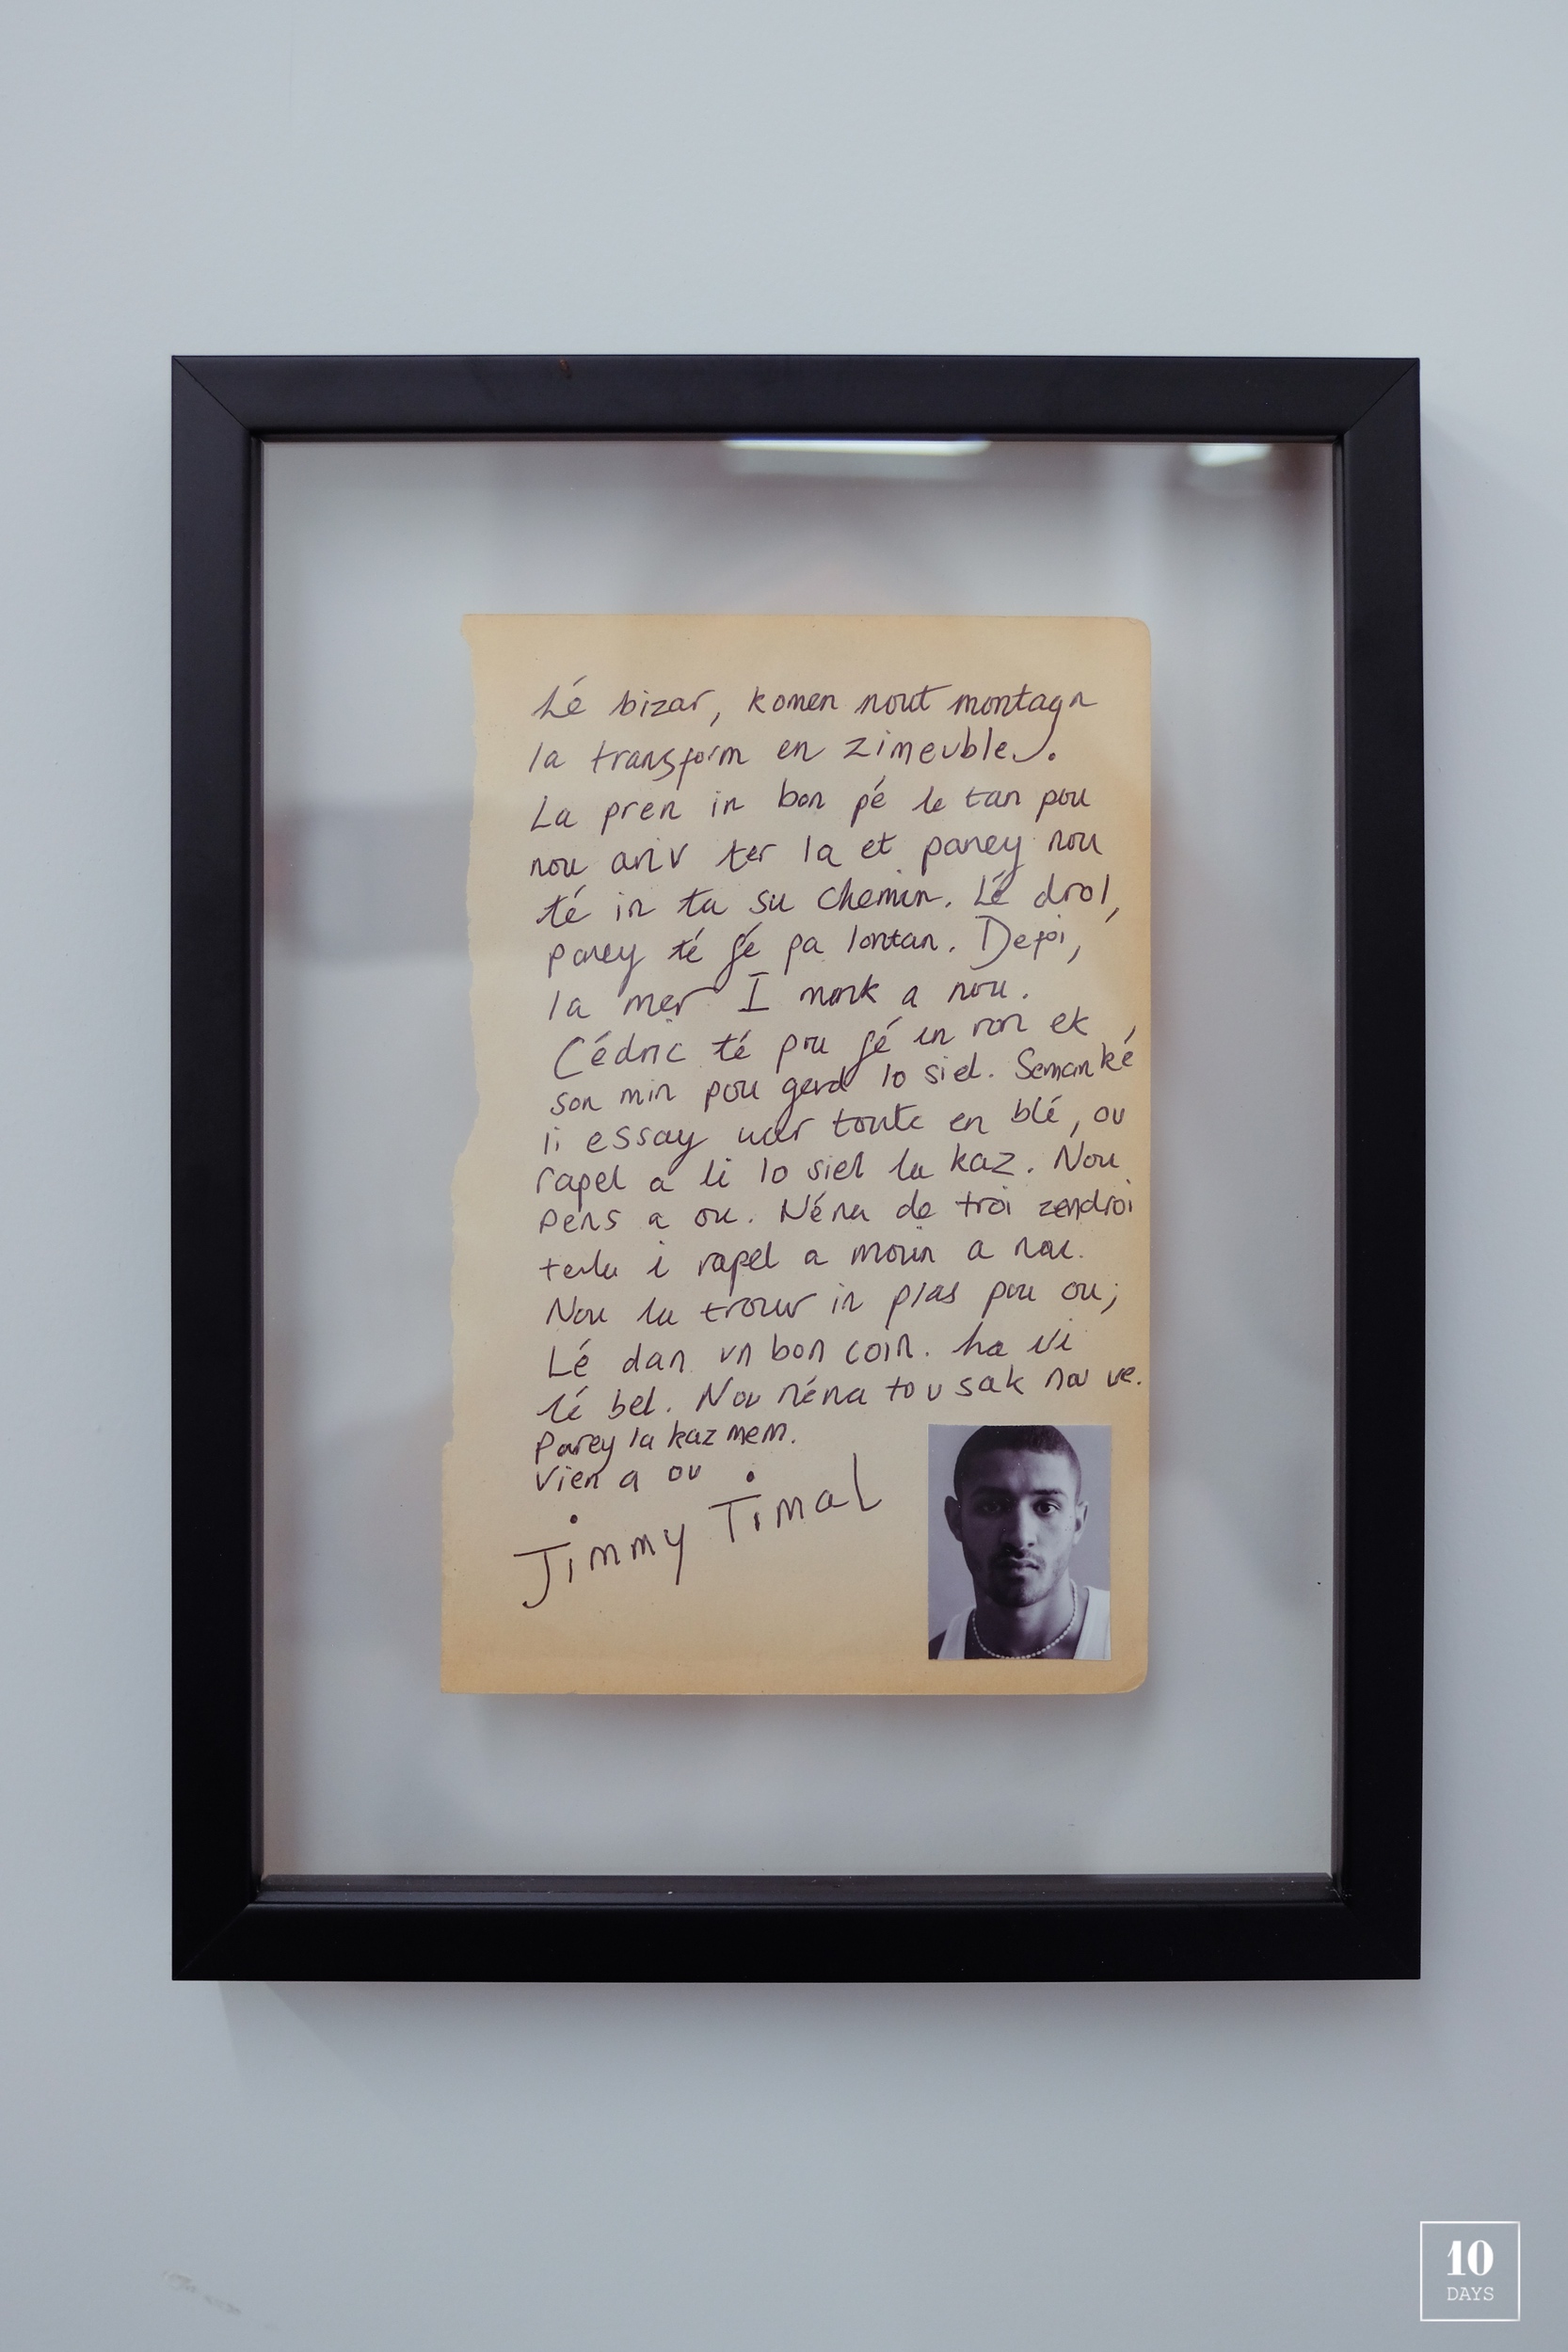 Lé bizar, komen nout montagn
la transform en zimeuble.
La pren in bon pé le tan pou
nou ariv ter la et parey nou
té in ta su chemin. Lé drol,
parey té fé pa lontan. Defoi,
la mer I mank a nou.
Cédric té pou fé un ron ek
son min pou gard lo siel. Semanké
li essay war toute en blé, ou
rapel a li lo siel la kaz. Nou
pens a ou. Néna de troi zendroi
terla i rapel a moin a nou.
Nou la trouv in plas pou ou;
Lé dan un bon coin. La vi
lé bel. Nou néna tou sak nou ve.
Parey la kaz mem.
Vien a ou
Jimmy Timal
10
DAYS